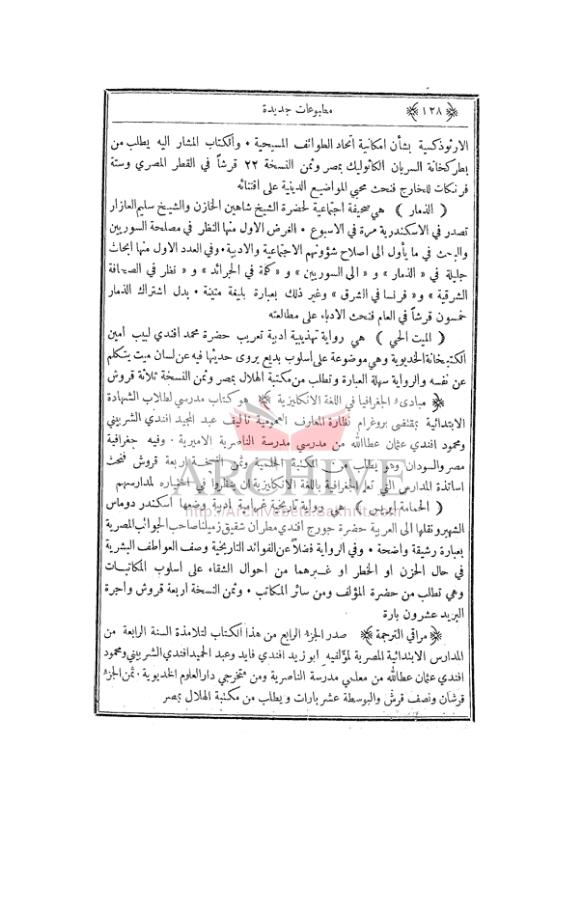 ﴿ ١٢٨ ﴾ مطبوعات جديدة
الارثوذكسية بشأن امكانية اتحاد الطوائف المسيحية ٠ والكتاب المشار اليه يطلب من
بطركخانة السريان الكاثوليك بمصر وثمن النسخة ٢٢ قرشاً في القطر المصري وستة
فرنكات للخارج فنحث محبي المواضيع الدينية على اقتنائه
( الذمار ) هي صحيفة اجتماعية لحضرة الشيخ شاهين الخازن والشيخ سليم العازار
تصدر في الاسكندرية مرة في الاسبوع ٠ الغرض الاول منها النظر في مصلحة السوريين
والبحث في ما يأول الى اصلاح شؤونهم الاجتماعية والادبية ٠ وفي العدد الاول منها ابحاث
جليلة في « الذمار » و « الى السوريين » و « كلمة في الجرائد » و « نظر في الصحافة
الشرقية » و« فرنسا في الشرق » وغير ذلك بعبارة بليغة متينة ٠ بدل اشتراك الذمار
خمسون قرشاً في العام فنحث الادباء على مطالعته
( الميت الحي ) هي رواية تهذيبية ادبية تعريب حضرة محمد افندي لبيب امين
الكتبخانة الخديوية وهي موضوعة على اسلوب بديع يروى حديثها فيه عن لسان ميت يتكلم
عن نفسه والرواية سهلة العبارة وتطلب من مكتبة الهلال بمصر وثمن النسخة ثلاثة قروش
﴿ مبادىء الجغرافيا في اللغة الانكليزية ﴾ هو كتاب مدرسي لطلاب الشهادة
الابتدائية بمقتضى بروغرام نظارة المعارف العمومية تأليف عبد المجيد افندي الشربيني
ومحمود افندي عثمان عطاالله من مدرسي مدرسة الناصرية الاميرية ٠ وفيه جغرافية
مصر والسودان وهو يطلب من المكتبة وثمن النسخة اربعة قروش فنحث
اساتذة المدارس التي تعلم الجغرافية باللغة الانكليزية ان ينظروا في اختياره لمدارسهم
( الحمامة ايريس ) هي رواية تاريخية غرامية ادبية وضعها اسكندر دوماس
الشهير ونقلها الى العربية حضرة جورج افندي مطران شقيق زميلنا صاحب الجوائب المصرية
بعبارة رشيقة واضحة ٠ وفي الرواية فضلاً عن الفوائد التاريخية وصف العواطف البشرية
في حال الحزن او الخطر او غيرهما من احوال الشقاء على اسلوب المكاتبات
وهي تطلب من حضرة المؤلف ومن سائر المكاتب ٠ وثمن النسخة اربعة قروش واجرة
البريد عشرون بارة
﴿ مراقي الترجمة ﴾ صدر الجزء الرابع من هذا الكتاب لتلامذة السنة الرابعة من
المدارس الابتدائية المصرية لمؤلفيه ابو زيد افندي فايد وعبد الحميد افندي الشربيني ومحمود
افندي عثمان عطاالله من معلمي مدرسة الناصرية ومن متخرجي دار العلوم الخديوية ٠ ثمن الجزء
قرشان ونصف قرش والبوسطة عشر بارات ويطلب من مكتبة الهلال بمصر
ARCHIVE